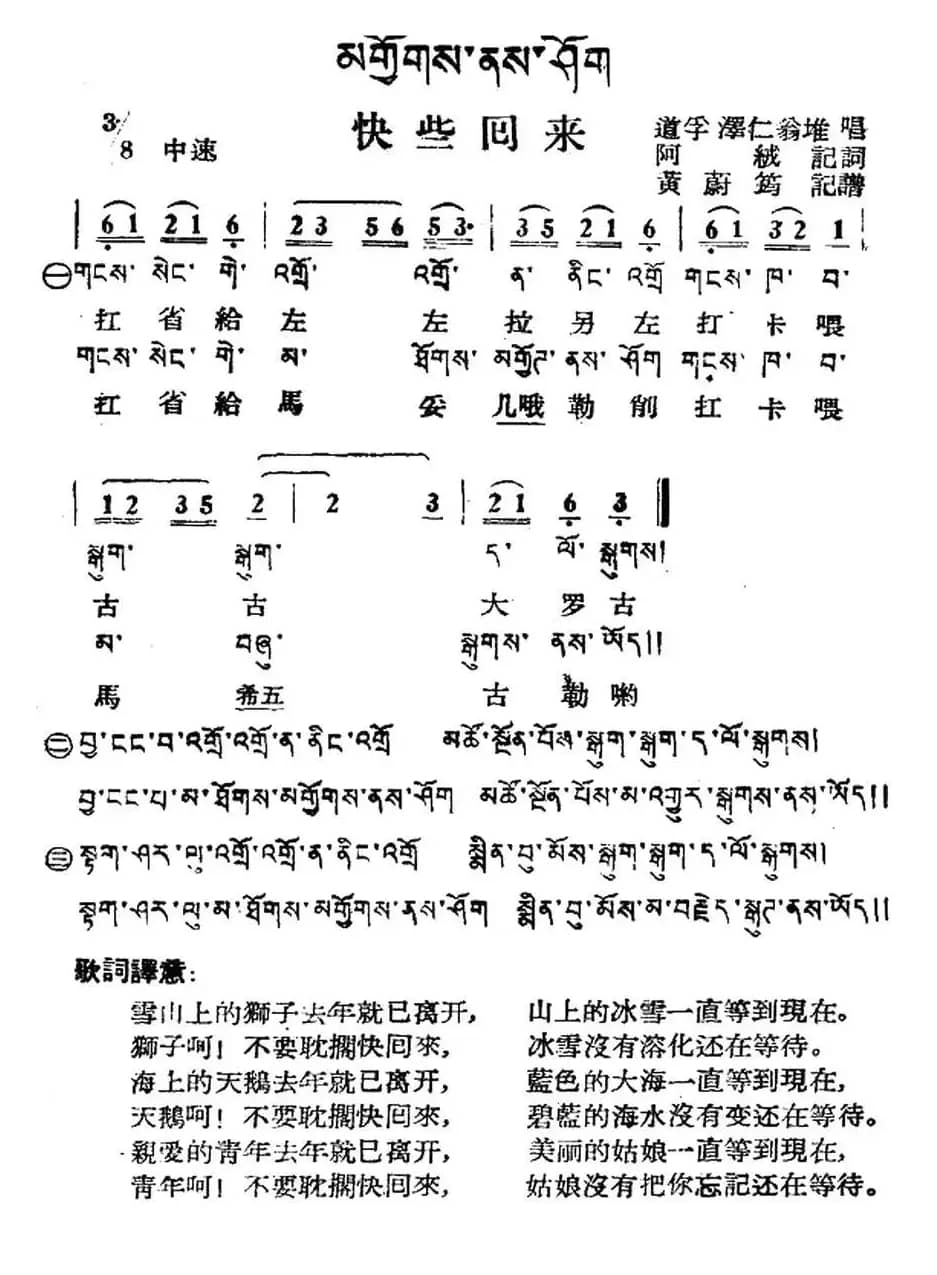 མགྱོགས་ནས་ཤོག
快些囘来
3/8 中速
道孚澤仁翁堆唱
阿絨記詞
黃蔚筠記譜
| 6 1 2 1 6 | 2 3 5 6 5 3· | 3 5 2 1 6 | 6 1 3 2 1 |
㊀གངས་སེང་གེ་འགྲོ་ འགྲོ་ན་ནིང་འགྲོ གངས་ཁ་བ་
扛省給左 左拉另左打卡喂
གངས་སེང་གེ་མ་ ཐོགས་མགྱོཊ་ནས་ཤོག གངས་ཁ་བ་
扛省給馬 妥几哦勒削扛卡喂
| 1 2 3 5 2 | 2 3 | 2 1 6 3 ‖
སྒུག་སྒུག་ ད་ལོ་སྒུགས།
古古 大罗古
མ་བཞུ་ སྒུགས་ནས་ཡོད།།
馬希五 古勒喲
㊁བྱ་ངང་བ་འགྲོ་འགྲོ་ན་ནིང་འགྲོ མཚོ་སྔོན་པོས་སྒུག་སྒུག་ད་ལོ་སྒུགས།
བྱ་ངང་པ་མ་ཐོགས་མགྱོགས་ནས་ཤོག མཚོ་སྔོན་པོས་མ་འགྱུར་སྒུགས་ནས་ཡོད།།
㊂སྟག་ཤར་ལུ་འགྲོ་འགྲོ་ན་ནིང་འགྲོ སྨིན་བུ་མོས་སྒུག་སྒུག་ད་ལོ་སྒུགས།
སྟག་ཤར་ལུ་མ་ཐོགས་མགྱོགས་ནས་ཤོག སྨིན་བུ་མོས་མ་བརྗེད་སྒུཊ་ནས་ཡོད།།
歌詞譯意:
雪山上的獅子去年就已离开, 山上的冰雪一直等到現在。
獅子呵! 不要耽擱快囘來, 冰雪沒有溶化还在等待。
海上的天鵝去年就已离开, 藍色的大海一直等到現在,
天鵝呵! 不要耽擱快囘來, 碧藍的海水沒有变还在等待。
親愛的青年去年就已离开, 美丽的姑娘一直等到現在,
青年呵! 不要耽擱快囘來, 姑娘沒有把你忘記还在等待。